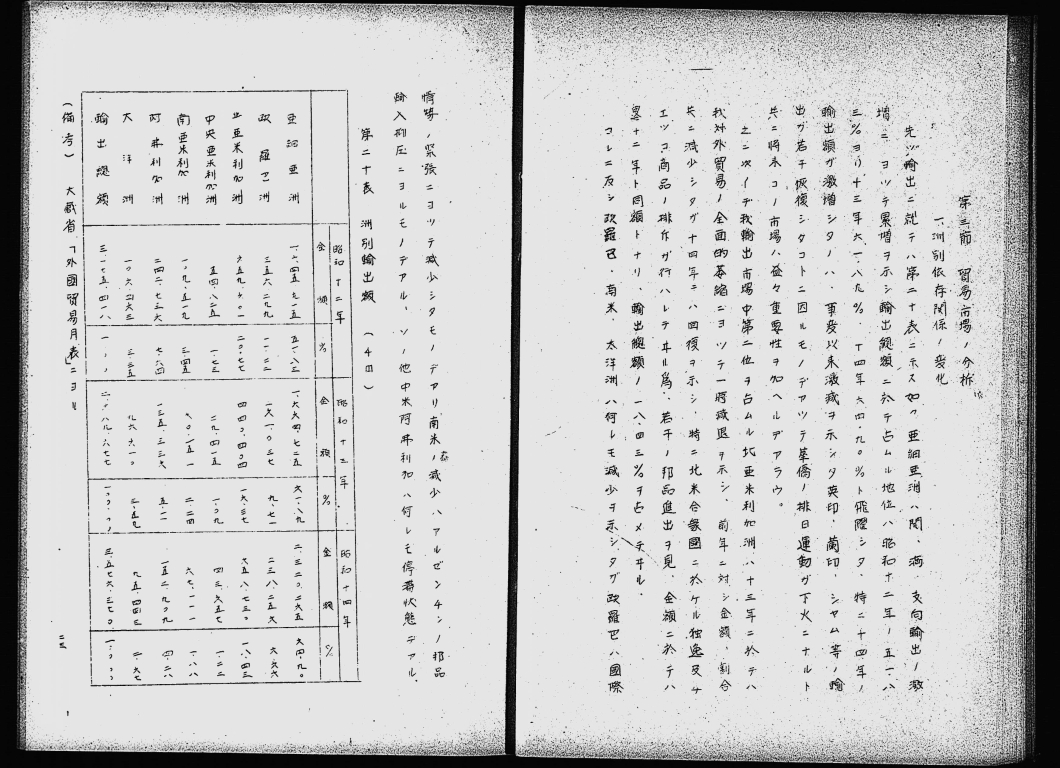 第三節　貿易市場ノ分析
一、洲別依存関係ノ変化
先ヅ輸出ニ就テハ第二十表ニ示ス如ク亜細亜洲ハ関、満、支向輸出ノ激
増ニヨツテ累増ヲ示シ輸出総額ニ於テ占ムル地位ハ昭和十二年ノ五一・八
三％ヨリ十三年六一・八九％、十四年六四・九〇％ト飛躍シタ、特ニ十四年ノ
輸出額ガ激増シタノハ、事変以来激減ヲ示シタ英印、蘭印、シャム等ノ輸
出ガ若干恢復シタコトニ因ルモノデアツテ華僑ノ排日運動ガ下火ニナルト
共ニ将来コノ市場ハ益々重要性ヲ加ヘルデアラウ。
之ニ次イデ我輸出市場中第二位ヲ占ムル北亜米利加洲ハ十三年ニ於テハ
我対外貿易ノ全面的萎縮ニヨツテ一時減退ヲ示シ、前年ニ対シ金額、割合
共ニ減少シタガ十四年ニハ回復ヲ示シ、特ニ北米合衆国ニ於ケル独逸及チ
エツコ商品ノ排斥ガ行ハレテヰル為、若干ノ邦品進出ヲ見、金額ニ於テハ
略十二年ト同額トナリ、輸出総額ノ一八・四三％ヲ占メテヰル。
コレニ反シ欧羅巴、南米、大洋洲ハ何レモ減少ヲ示シタガ欧羅巴ハ国際
情勢ノ緊張ニヨツテ減少シタモノデアリ南米ノ減少ハアルゼンチンノ邦品
輸入抑圧ニヨルモノデアル、ソノ他中米阿弗利加ハ何レモ停滞状態デアル。
第二十表　洲別輸出額　（４四）
昭和十二年　昭和十三年　昭和十四年
金額　％　金額　％　金額　％
亜細亜洲　一、六四五、九二五　五一・八三　一、六六四、七二五　六一・八九　二、三二〇、二六五　六四・九〇
欧羅巴洲　三五六、二九九　一一・二二　二六一、〇三七　九・七一　二三八、二五六　六・六六
北亜米利加洲　六五九、六〇一　二〇・七七　四四〇、四〇四　一六・三七　六五八、六三七　一八・四三
中央亜米利加　五四、八二五　一・七三　二九、四一五　一・〇九　四三、九六七　一・二三
南亜米利加　一〇九、五一九　三・四五　六〇、一五一　二・二四　六七、一一一　一・八八
阿弗利加　二四二、七三六　七・六四　一三五、三三六　五・一一　一五二、九〇九　四・二八
大洋洲　一〇六、四六三　三・三五　六九、六六一〇　二・五九　九五、四四三　二・六七
輸出総額　三、一七五、四一八　一〇〇　二、六八九、六七七　一〇〇・〇〇　三、五七六、三七〇　一〇〇・〇〇
（備考）　大蔵省「外国貿易月表」ニヨル
二三